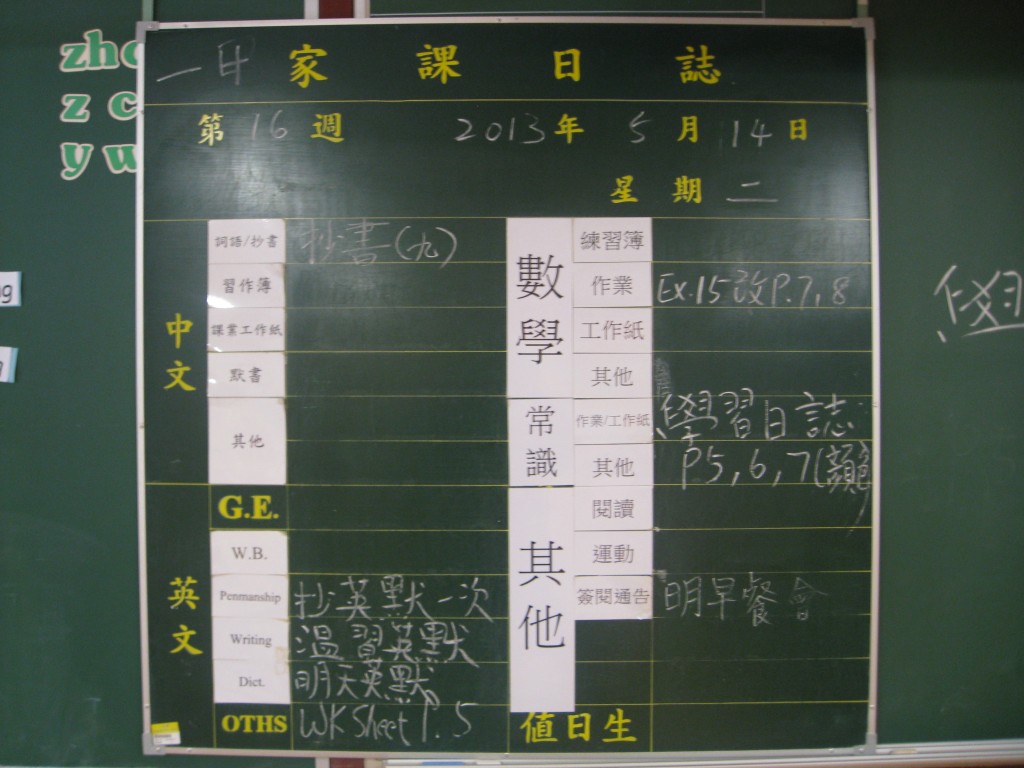 zh
z c
y w
家課日誌
第 16 週 2013 年 5 月 14 日
星期 二
中文
詞語/抄書 抄書(九)
習作簿
課業工作紙
默書
其他
英文
G.E.
W.B.
Penmanship 抄英默一次
Writing 溫習英默
Dict. 明天英默
OTHS WK Sheet P.5
數學
練習簿
作業 Ex.15 改P.7,8
工作紙
其他
常識
作業/工作紙 學習日誌
其他 P5,6,7(顏色)
其他
閱讀
運動
簽閱通告 明早餐會
值日生
學